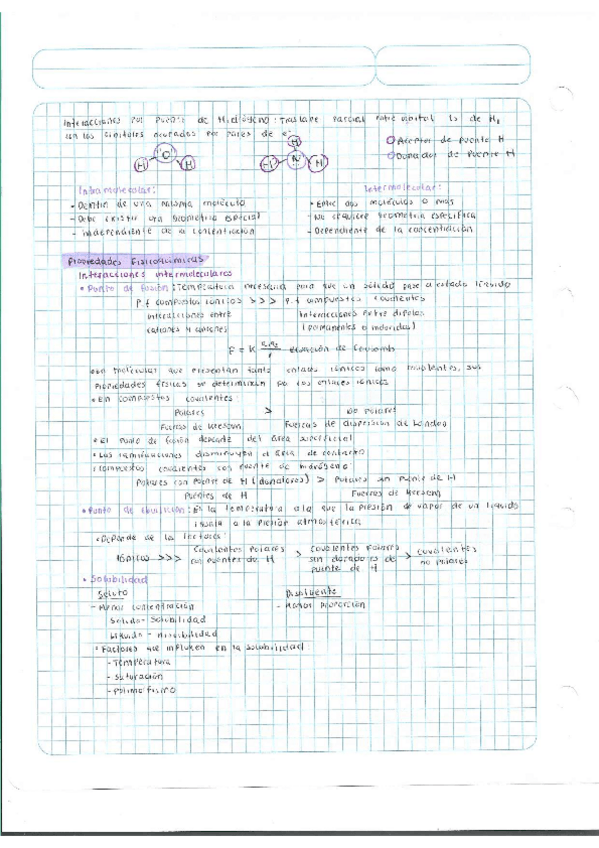 Interacciones por puente de Hidrógeno: Traslape parcial entre orbital 1s de H,
con los orbitales ocupados por pares de e-
H O H
H N H H
Aceptor de puente H
Donador de puente H
Intramolecular:
Intermolecular:
- Dentro de una misma molécula
• Entre dos moléculas o más
- Debe existir una geometría especial
- No requiere geometría específica
- Independiente de la concentración
- Dependiente de la concentración
Propiedades Fisicoquímicas
Interacciones intermoleculares
• Punto de fusión: Temperatura necesaria para que un sólido pase a estado líquido
P.f compuestos iónicos >>> p.f compuestos covalentes
interacciones entre
Interacciones entre dipolos
cationes y aniones
(permanentes o inducidas)
F = K ecuación de Coulomb
moléculas que presentan tanto enlaces iónicos como covalentes, sus
propiedades físicas se determinan por los enlaces iónicos
• En compuestos covalentes
Polares > No polares
Fuerzas de Keesom
Fuerzas de dispersión de London
• El Punto de fusión depende del área superficial
• Las ramificaciones disminuyen el área de contacto
compuestos covalentes con puente de hidrógeno
Polares con puente de H (donadores) > Polares sin puente de H
Puentes de H
Fuerzas de Keesom
• Punto de ebullición: Es la temperatura a la que la presión de vapor de un líquido
iguala a la presión atmosférica
• Depende de los factores:
Iónicos >>> Covalentes polares con puentes de H > Covalentes polares sin donadores de puente de H > covalentes no polares
• Solubilidad
Soluto
Disolvente
- Menor concentración
- Mayor proporción
Sólido - Solubilidad
Líquido - miscibilidad
• Factores que influyen en la solubilidad:
- Temperatura
- Saturación
- Polimorfismo